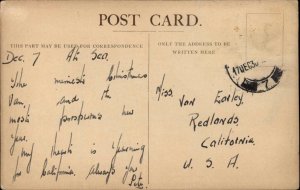 POST CARD.
THIS PART MAY BE USED FOR CORRESPONDENCE
ONLY THE ADDRESS TO BE
WRITTEN HERE
Dec. 7 At Sea.
The merriest Christmas
Van, and the
most prosperous New
Year.
My heart is yearning
for California. Always for
Pete.
Miss
Van
Redlands
California
U. S. A.